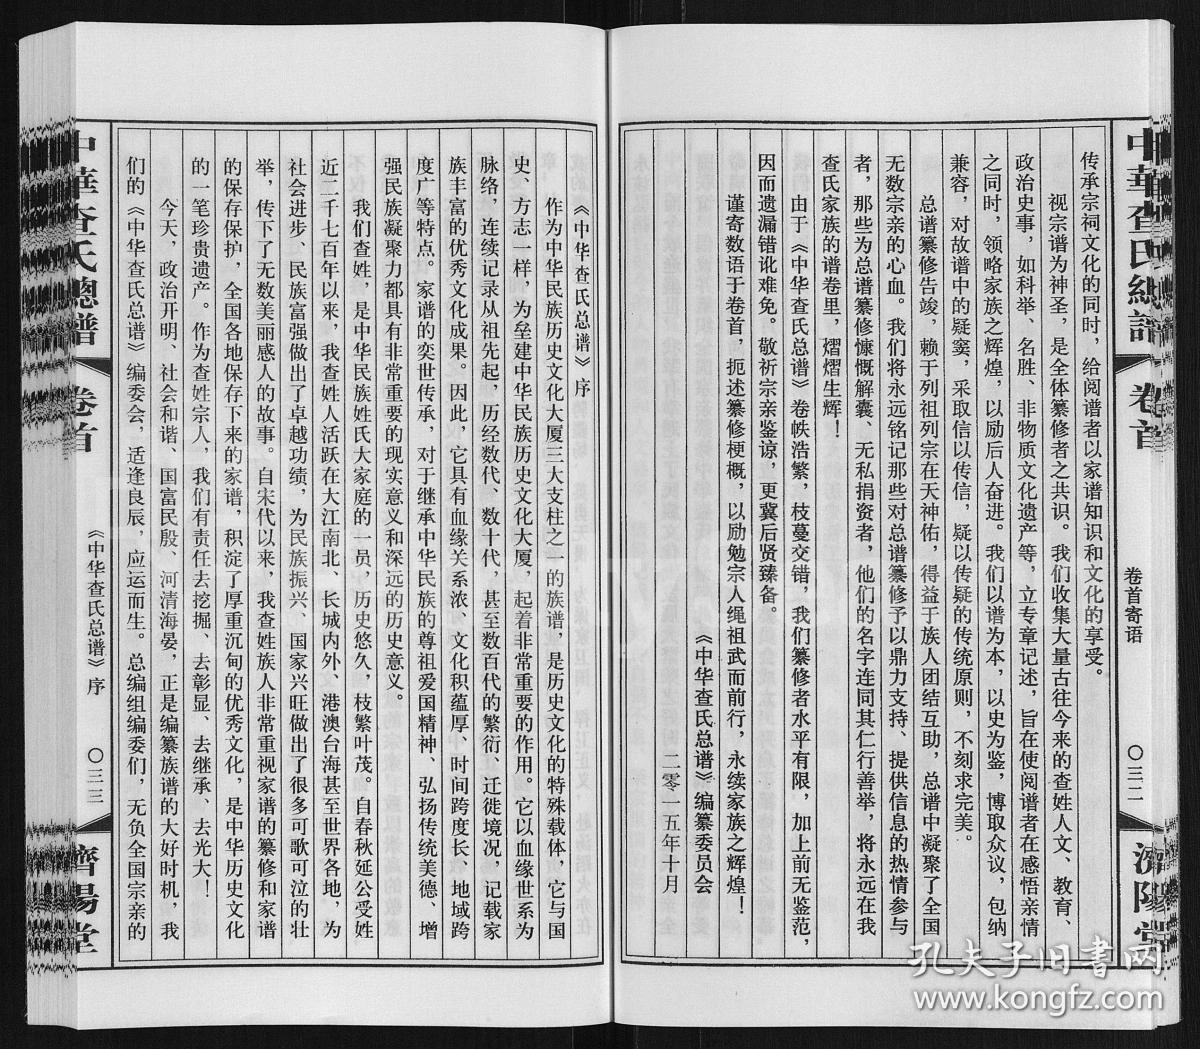 中華查氏總譜 卷首
卷首寄语
〇三二
濟陽堂
传承宗祠文化的同时，给阅谱者以家谱知识和文化的享受。
视宗谱为神圣，是全体纂修者之共识。我们收集大量古往今来的查姓人文、教育、
政治史事，如科举、名胜、非物质文化遗产等，立专章记述，旨在使阅谱者在感悟亲情
之同时，领略家族之辉煌，以励后人奋进。我们以谱为本，以史为鉴，博取众议，包纳
兼容，对故谱中的疑窦，采取信以传信，疑以传疑的传统原则，不刻求完美。
总谱纂修告竣，赖于列祖列宗在天神佑，得益于族人团结互助，总谱中凝聚了全国
无数宗亲的心血。我们将永远铭记那些对总谱纂修予以鼎力支持、提供信息的热情参与
者，那些为总谱纂修慷慨解囊、无私捐资者，他们的名字连同其仁行善举，将永远在我
查氏家族的谱卷里，熠熠生辉！
由于《中华查氏总谱》卷帙浩繁，枝蔓交错，我们纂修者水平有限，加上前无鉴范，
因而遗漏错讹难免。敬祈宗亲鉴谅，更冀后贤臻备。
谨寄数语于卷首，扼述纂修梗概，以励勉宗人绳祖武而前行，永续家族之辉煌！
《中华查氏总谱》编纂委员会
二零一五年十月
《中华查氏总谱》序
作为中华民族历史文化大厦三大支柱之一的族谱，是历史文化的特殊载体，它与国
史、方志一样，为垒建中华民族历史文化大厦，起着非常重要的作用。它以血缘世系为
脉络，连续记录从祖先起，历经数代、数十代，甚至数百代的繁衍迁徙境况，记载家
族丰富的优秀文化成果。因此，它具有血缘关系浓、文化积蕴厚、时间跨度长、地域跨
度广等特点。家谱的奕世传承，对于继承中华民族的尊祖爱国精神、弘扬传统美德、增
强民族凝聚力都具有非常重要的现实意义和深远的历史意义。
我们查姓，是中华民族姓氏大家庭的一员，历史悠久，枝繁叶茂。自春秋延公受姓
近二千七百年以来，我查姓人活跃在大江南北、长城内外、港澳台海甚至世界各地，为
社会进步、民族富强做出了卓越功绩，为民族振兴、国家兴旺做出了很多可歌可泣的壮
举，传下了无数美丽感人的故事。自宋代以来，我查姓族人非常重视家谱的纂修和家谱
的保存保护，全国各地保存下来的家谱，积淀了厚重沉甸的优秀文化，是中华历史文化
的一笔珍贵遗产。作为查姓宗人，我们有责任去挖掘、去彰显、去继承、去光大！
今天，政治开明、社会和谐、国富民殷、河清海晏，正是编纂族谱的大好时机，我
们的《中华查氏总谱》编委会，适逢良辰，应运而生。总编组编委们，无负全国宗亲的
中華查氏總譜 卷首
《中华查氏总谱》序
〇三三
濟陽堂
孔夫子旧书网
www.kongfz.com